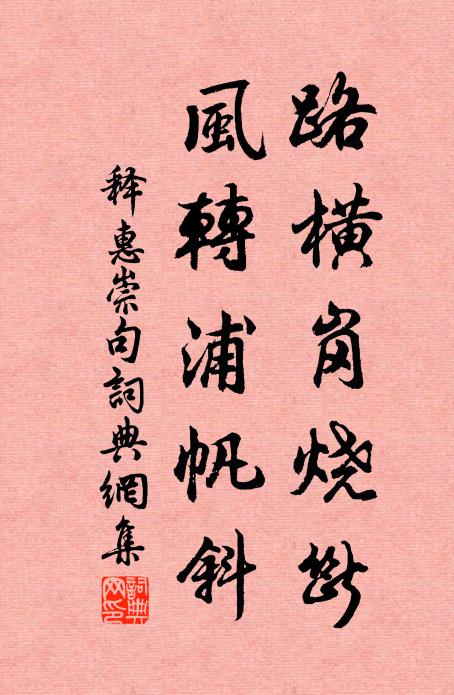 路橫岗烧断
風轉浦帆斜
释惠崇句詞典網集
詞典网印